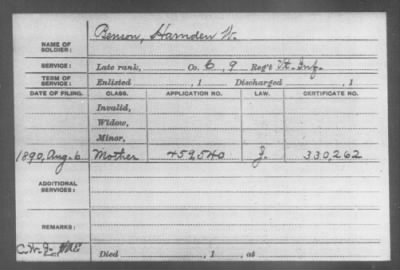 NAME OF SOLDIER: Benson, Hamden W.
SERVICE: Late rank, Co. G, 9 Reg't Vt. Inf.
TERM OF SERVICE: Enlisted , 1 Discharged , 1
DATE OF FILING. CLASS. APPLICATION NO. LAW. CERTIFICATE NO.
Invalid,
Widow,
Minor,
1890, Aug. 6 Mother 459540 J. 330,262
ADDITIONAL SERVICES:
REMARKS:
Died , 1 , at